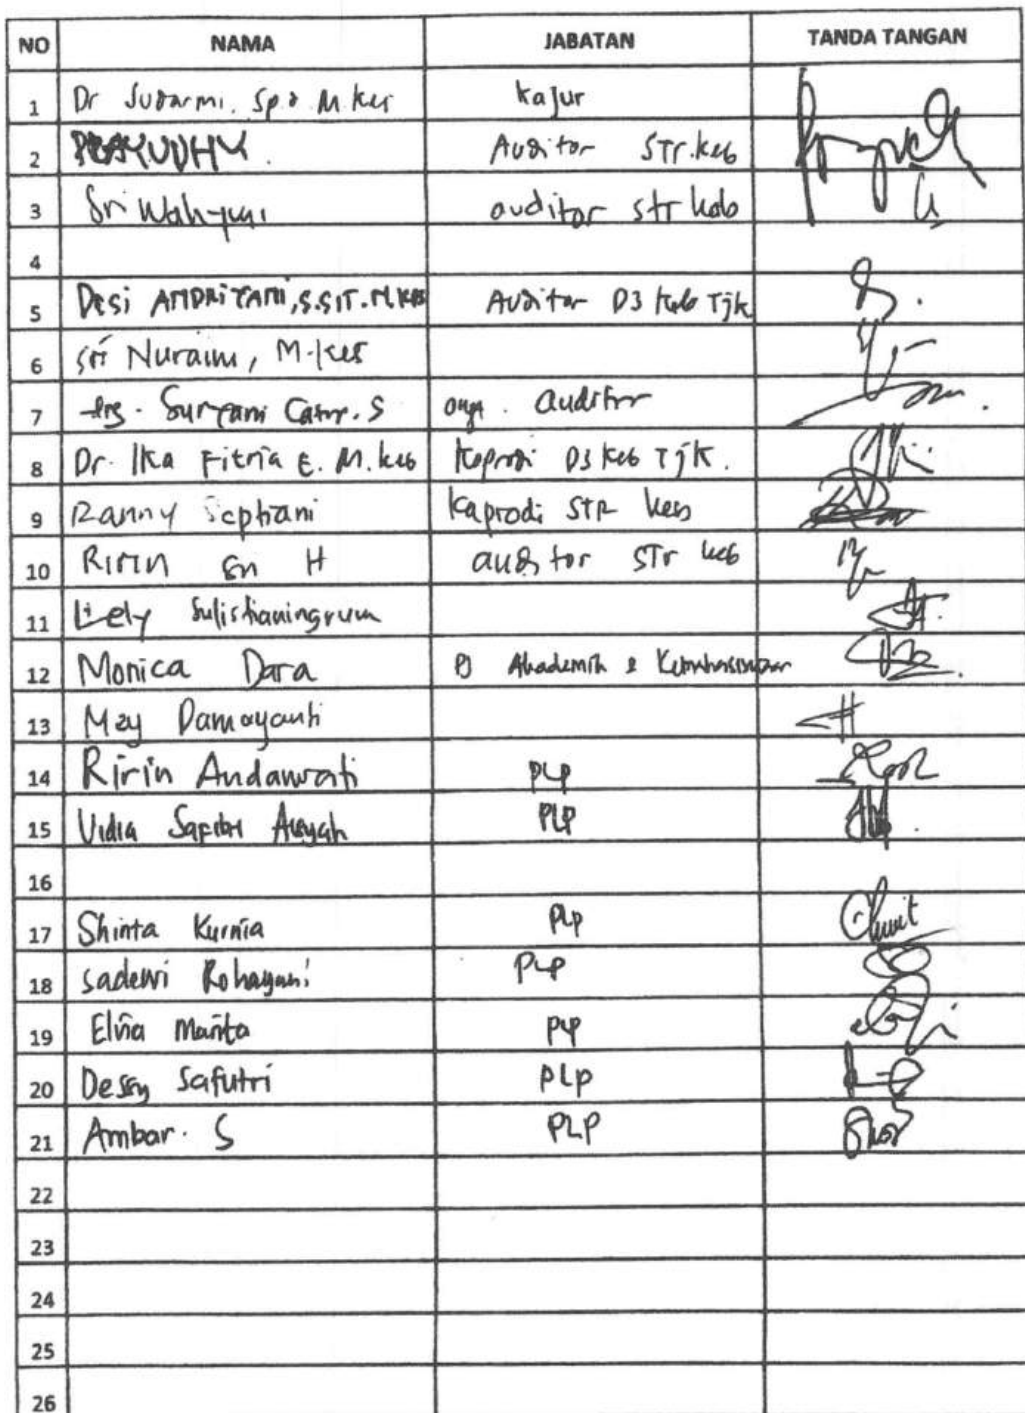 NO NAMA JABATAN TANDA TANGAN
1 Dr Sudarmi. Sp.d M.kes kajur
2 PRAYUDHY. Auditor STr.keb
3 Sri Wahyuni auditor str keb
4
5 Desi ANDRIYANI, S.SIT. M.KES Auditor D3 keb Tjk
6 Sri Nuraini, M.kes
7 drg. Suryani Catur. S auditor
8 Dr. Ika Fitria E. M.keb Kaprodi D3 keb Tjk.
9 Ranny Septiani Kaprodi STR keb
10 Ririn Sri H auditor STr keb
11 Liely Sulistianingrum
12 Monica Dara PJ Akademik & Kemahasiswaan
13 May Damayanti
14 Ririn Andanwati PLP
15 Vidia Safitri Aisyah PLP
16
17 Shinta Kurnia PLP
18 sadewi Rohayani PLP
19 Elvia Marita PLP
20 Dessy Safutri PLP
21 Ambar. S PLP
22
23
24
25
26